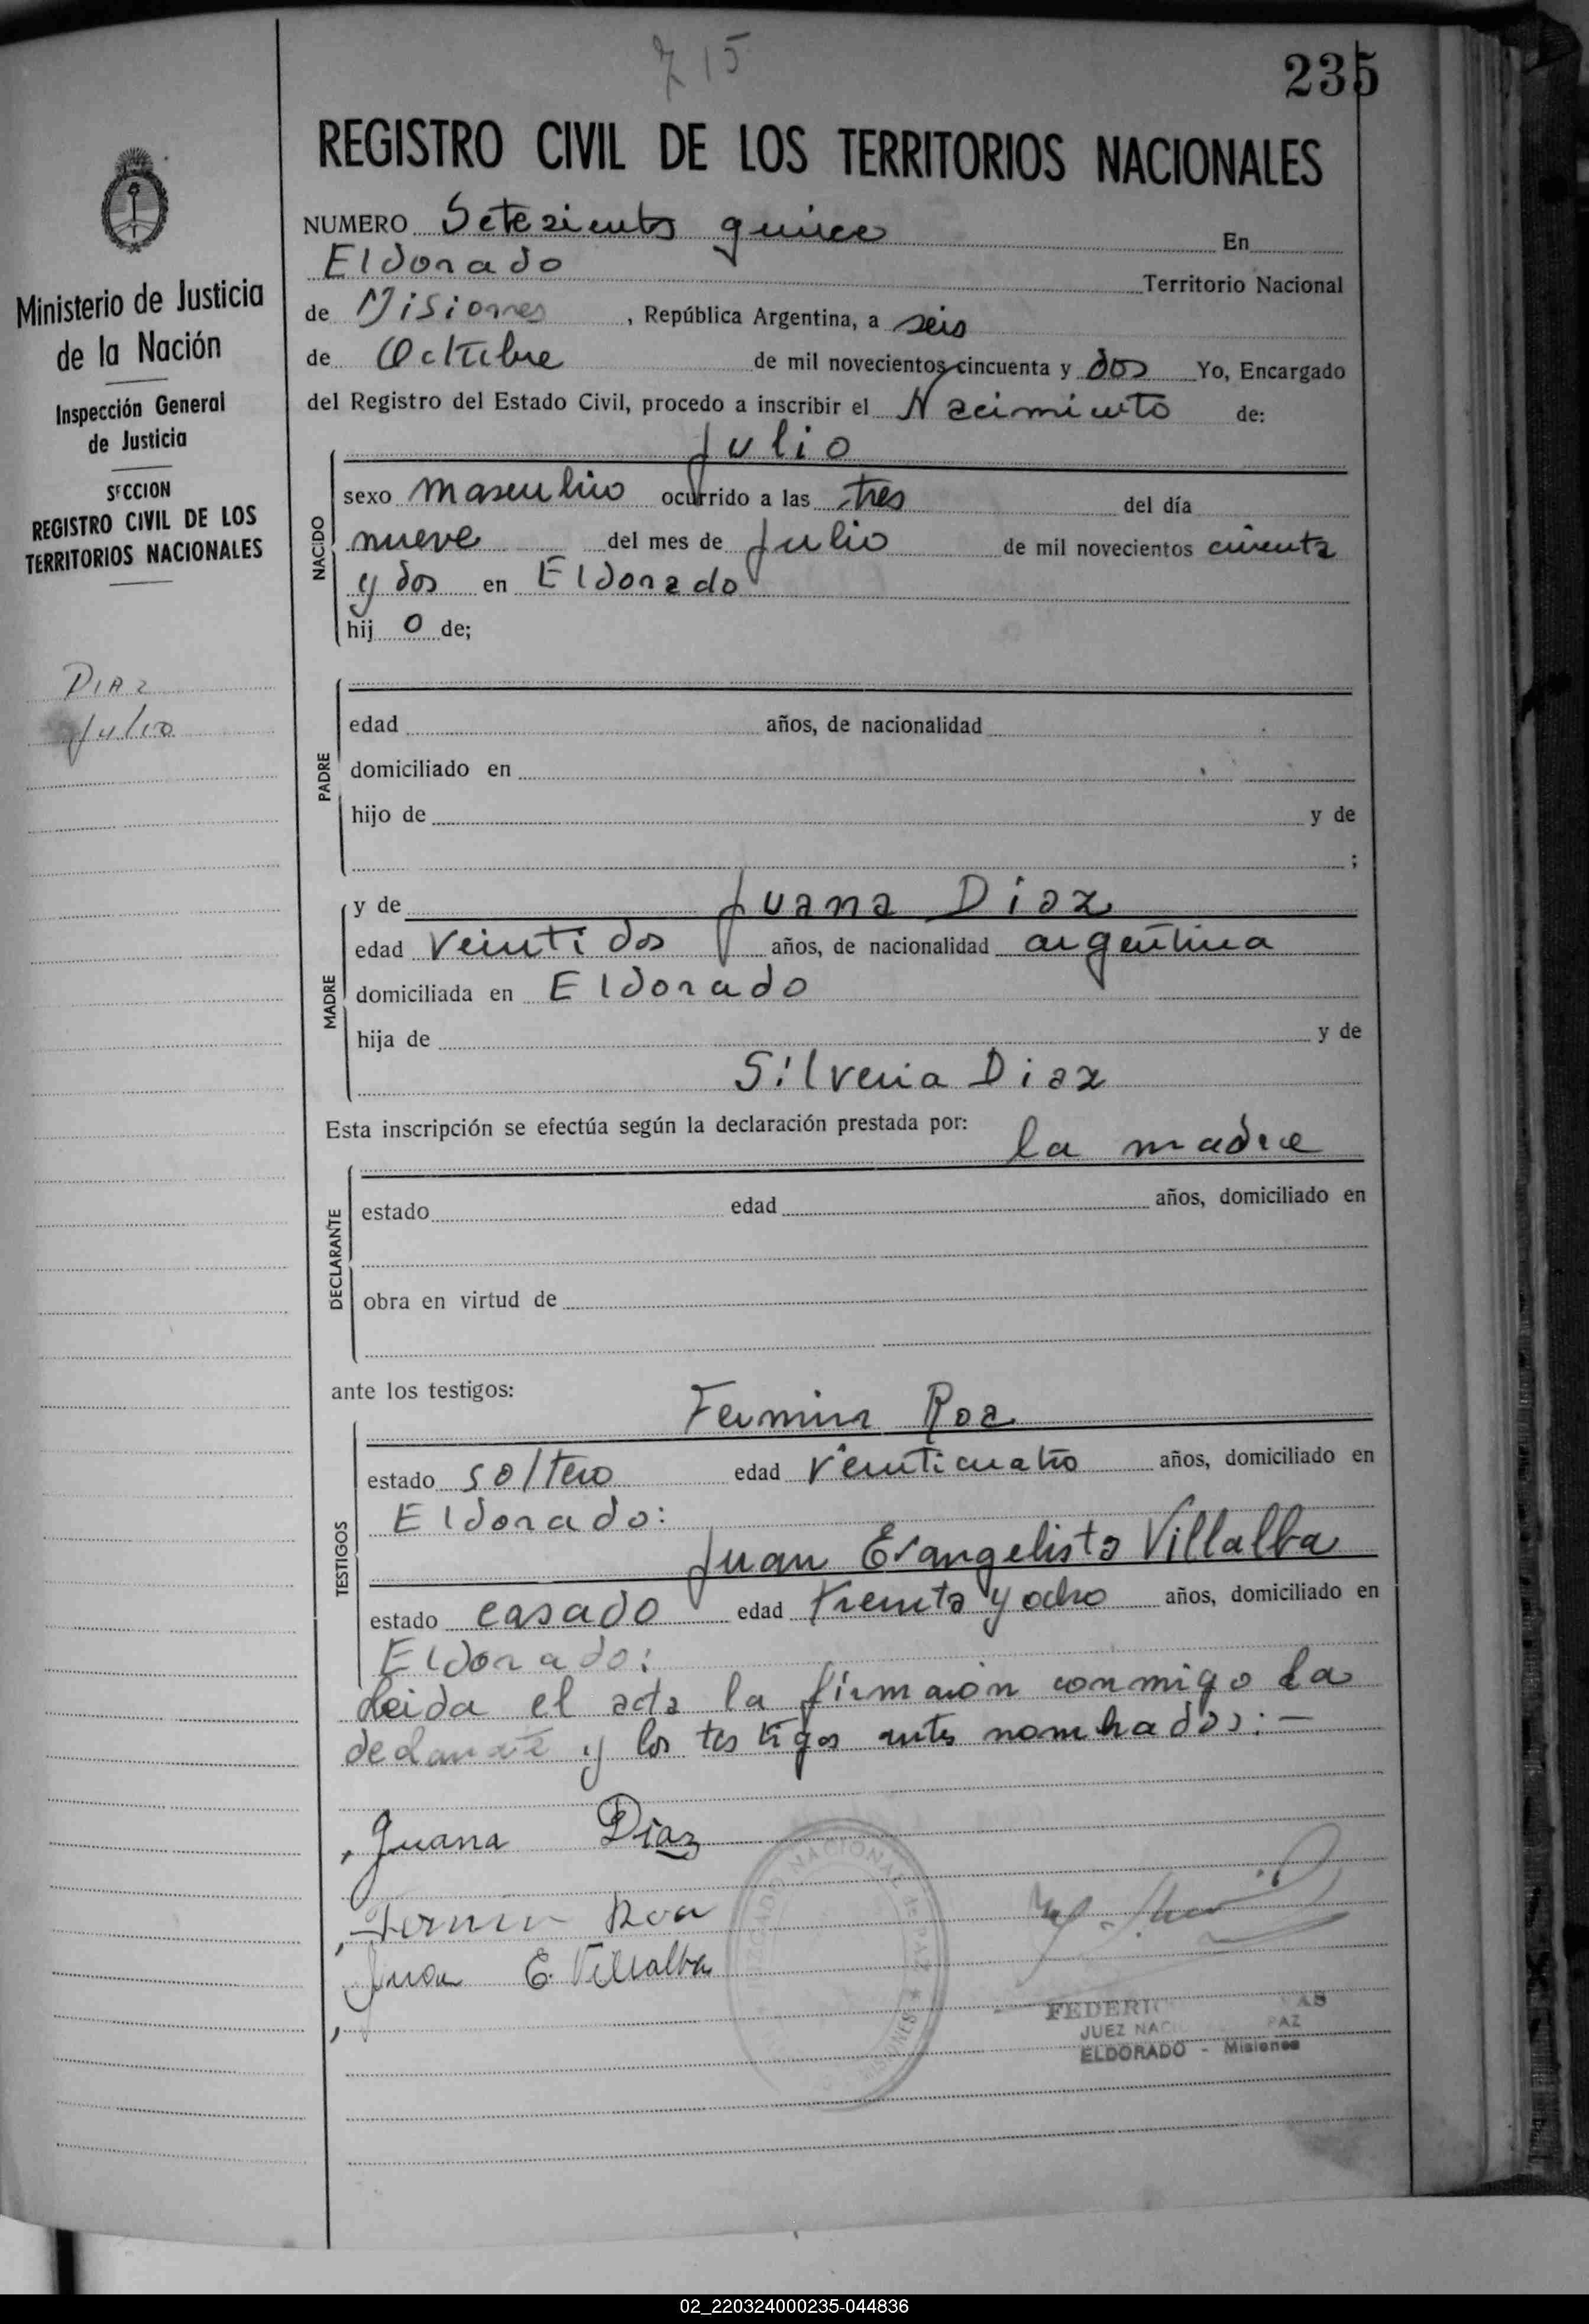 715
235
REGISTRO CIVIL DE LOS TERRITORIOS NACIONALES
Ministerio de Justicia
de la Nación
Inspección General
de Justicia
SECCION
REGISTRO CIVIL DE LOS
TERRITORIOS NACIONALES
DIAZ
Julio
NUMERO Setesientos quince En
Eldorado Territorio Nacional
de Misiones, República Argentina, a seis
de Octubre de mil novecientos cincuenta y dos Yo, Encargado
del Registro del Estado Civil, procedo a inscribir el Nacimiento de:
Julio
NACIDO
sexo masculino ocurrido a las tres del día
nueve del mes de Julio de mil novecientos
y dos en Eldorado
hij o de;
PADRE
edad años, de nacionalidad
domiciliado en
hijo de y de
;
MADRE
y de Juana Diaz
edad veinti dos años, de nacionalidad argentina
domiciliada en Eldorado
hija de y de
Silveria Diaz
Esta inscripción se efectúa según la declaración prestada por:
la madre
DECLARANTE
estado edad años, domiciliado en
obra en virtud de
ante los testigos:
TESTIGOS
Fermin Roa
estado soltero edad veinticuatro años, domiciliado en
Eldorado:
Juan Evangelista Villalba
estado casado edad treinta y ocho años, domiciliado en
Eldorado:
Leida el acta la firmaron conmigo la
declarante y los testigos antes nombrados: —
Juana Diaz
Fermin Roa
Juan E. Villalba
JUZGADO NACIONAL DE PAZ
MISIONES
JUEZ PAZ
ELDORADO - Misiones
02_220324000235-044836